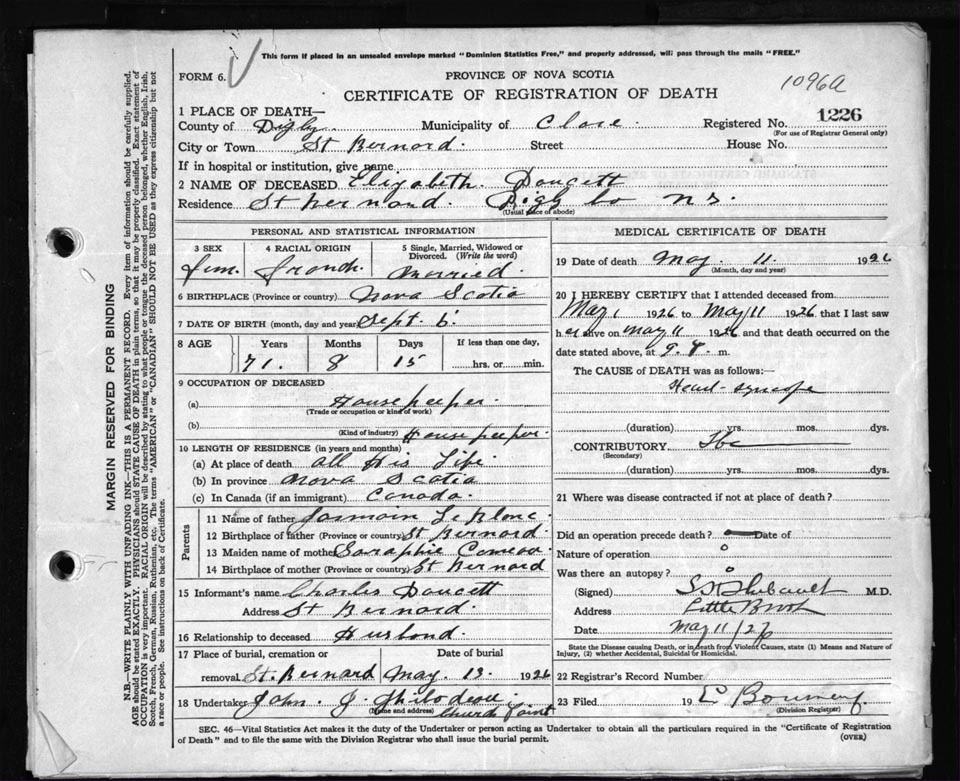 This form if placed in an unsealed envelope marked "Dominion Statistics Free," and properly addressed, will pass through the mails "FREE."
FORM 6.
PROVINCE OF NOVA SCOTIA
1096a
CERTIFICATE OF REGISTRATION OF DEATH
1 PLACE OF DEATH—
County of Digby. Municipality of Clare. Registered No. 1226
(For use of Registrar General only)
City or Town St Bernard. Street House No.
If in hospital or institution, give name
2 NAME OF DECEASED Elizabeth. Doucett
Residence St Bernard. Digby Co N S.
(Usual place of abode)
PERSONAL AND STATISTICAL INFORMATION
3 SEX 4 RACIAL ORIGIN 5 Single, Married, Widowed or Divorced. (Write the word)
Fem. French. Married.
6 BIRTHPLACE (Province or country) Nova Scotia
7 DATE OF BIRTH (month, day and year) Sept. 6
8 AGE Years Months Days If less than one day,
71. 8 15 hrs. or min.
9 OCCUPATION OF DECEASED
(a) House keeper.
(Trade or occupation or kind of work)
(b) House keeper
(Kind of industry)
10 LENGTH OF RESIDENCE (in years and months)
(a) At place of death all His Life
(b) In province Nova Scotia
(c) In Canada (if an immigrant) Canada.
Parents
11 Name of father Jarmain LeBlanc
12 Birthplace of father (Province or country) St Bernard
13 Maiden name of mother Saraphie Comeau
14 Birthplace of mother (Province or country) St Bernard
15 Informant's name Charles Doucett
Address St Bernard.
16 Relationship to deceased Husband.
17 Place of burial, cremation or removal Date of burial
St. Bernard May. 13. 1926
18 Undertaker John. J
(Name and address) Church Point
MEDICAL CERTIFICATE OF DEATH
19 Date of death May. 11. 1926
(Month, day and year)
20 I HEREBY CERTIFY that I attended deceased from
May 1 1926 to May 11 1926 that I last saw
her alive on May 11 1926 and that death occurred on
date stated above, at m.
The CAUSE of DEATH was as follows:—
Heart-syncope
(duration) yrs. mos. dys.
CONTRIBUTORY Tbc
(Secondary)
(duration) yrs. mos. dys.
21 Where was disease contracted if not at place of death?
Did an operation precede death? Date of
Nature of operation o
Was there an autopsy? o
(Signed) M.D.
Address Little Brook
Date May 11/26
State the Disease causing Death, or in death from Violent Causes, state (1) Means and Nature of Injury, (2) whether Accidental, Suicidal or Homicidal.
22 Registrar's Record Number
23 Filed 19
(Division Registrar)
SEC. 46—Vital Statistics Act makes it the duty of the Undertaker or person acting as Undertaker to obtain all the particulars required in the "Certificate of Registration
of Death" and to file the same with the Division Registrar who shall issue the burial permit.
(OVER)
MARGIN RESERVED FOR BINDING
N.B.—WRITE PLAINLY WITH UNFADING INK—THIS IS A PERMANENT RECORD. Every item of information should be carefully supplied.
AGE should be stated EXACTLY. PHYSICIANS should STATE CAUSE OF DEATH in plain terms, so that it may be properly classified. Exact statement of
OCCUPATION is very important. RACIAL ORIGIN will be described by stating to what people or tongue the deceased person belonged, whether English, Irish,
Scotch, French, German, Russian, Ruthenian, etc. The terms "AMERICAN" or "CANADIAN" SHOULD NOT BE USED as they express citizenship but not
a race or people. See instructions on back of Certificate.